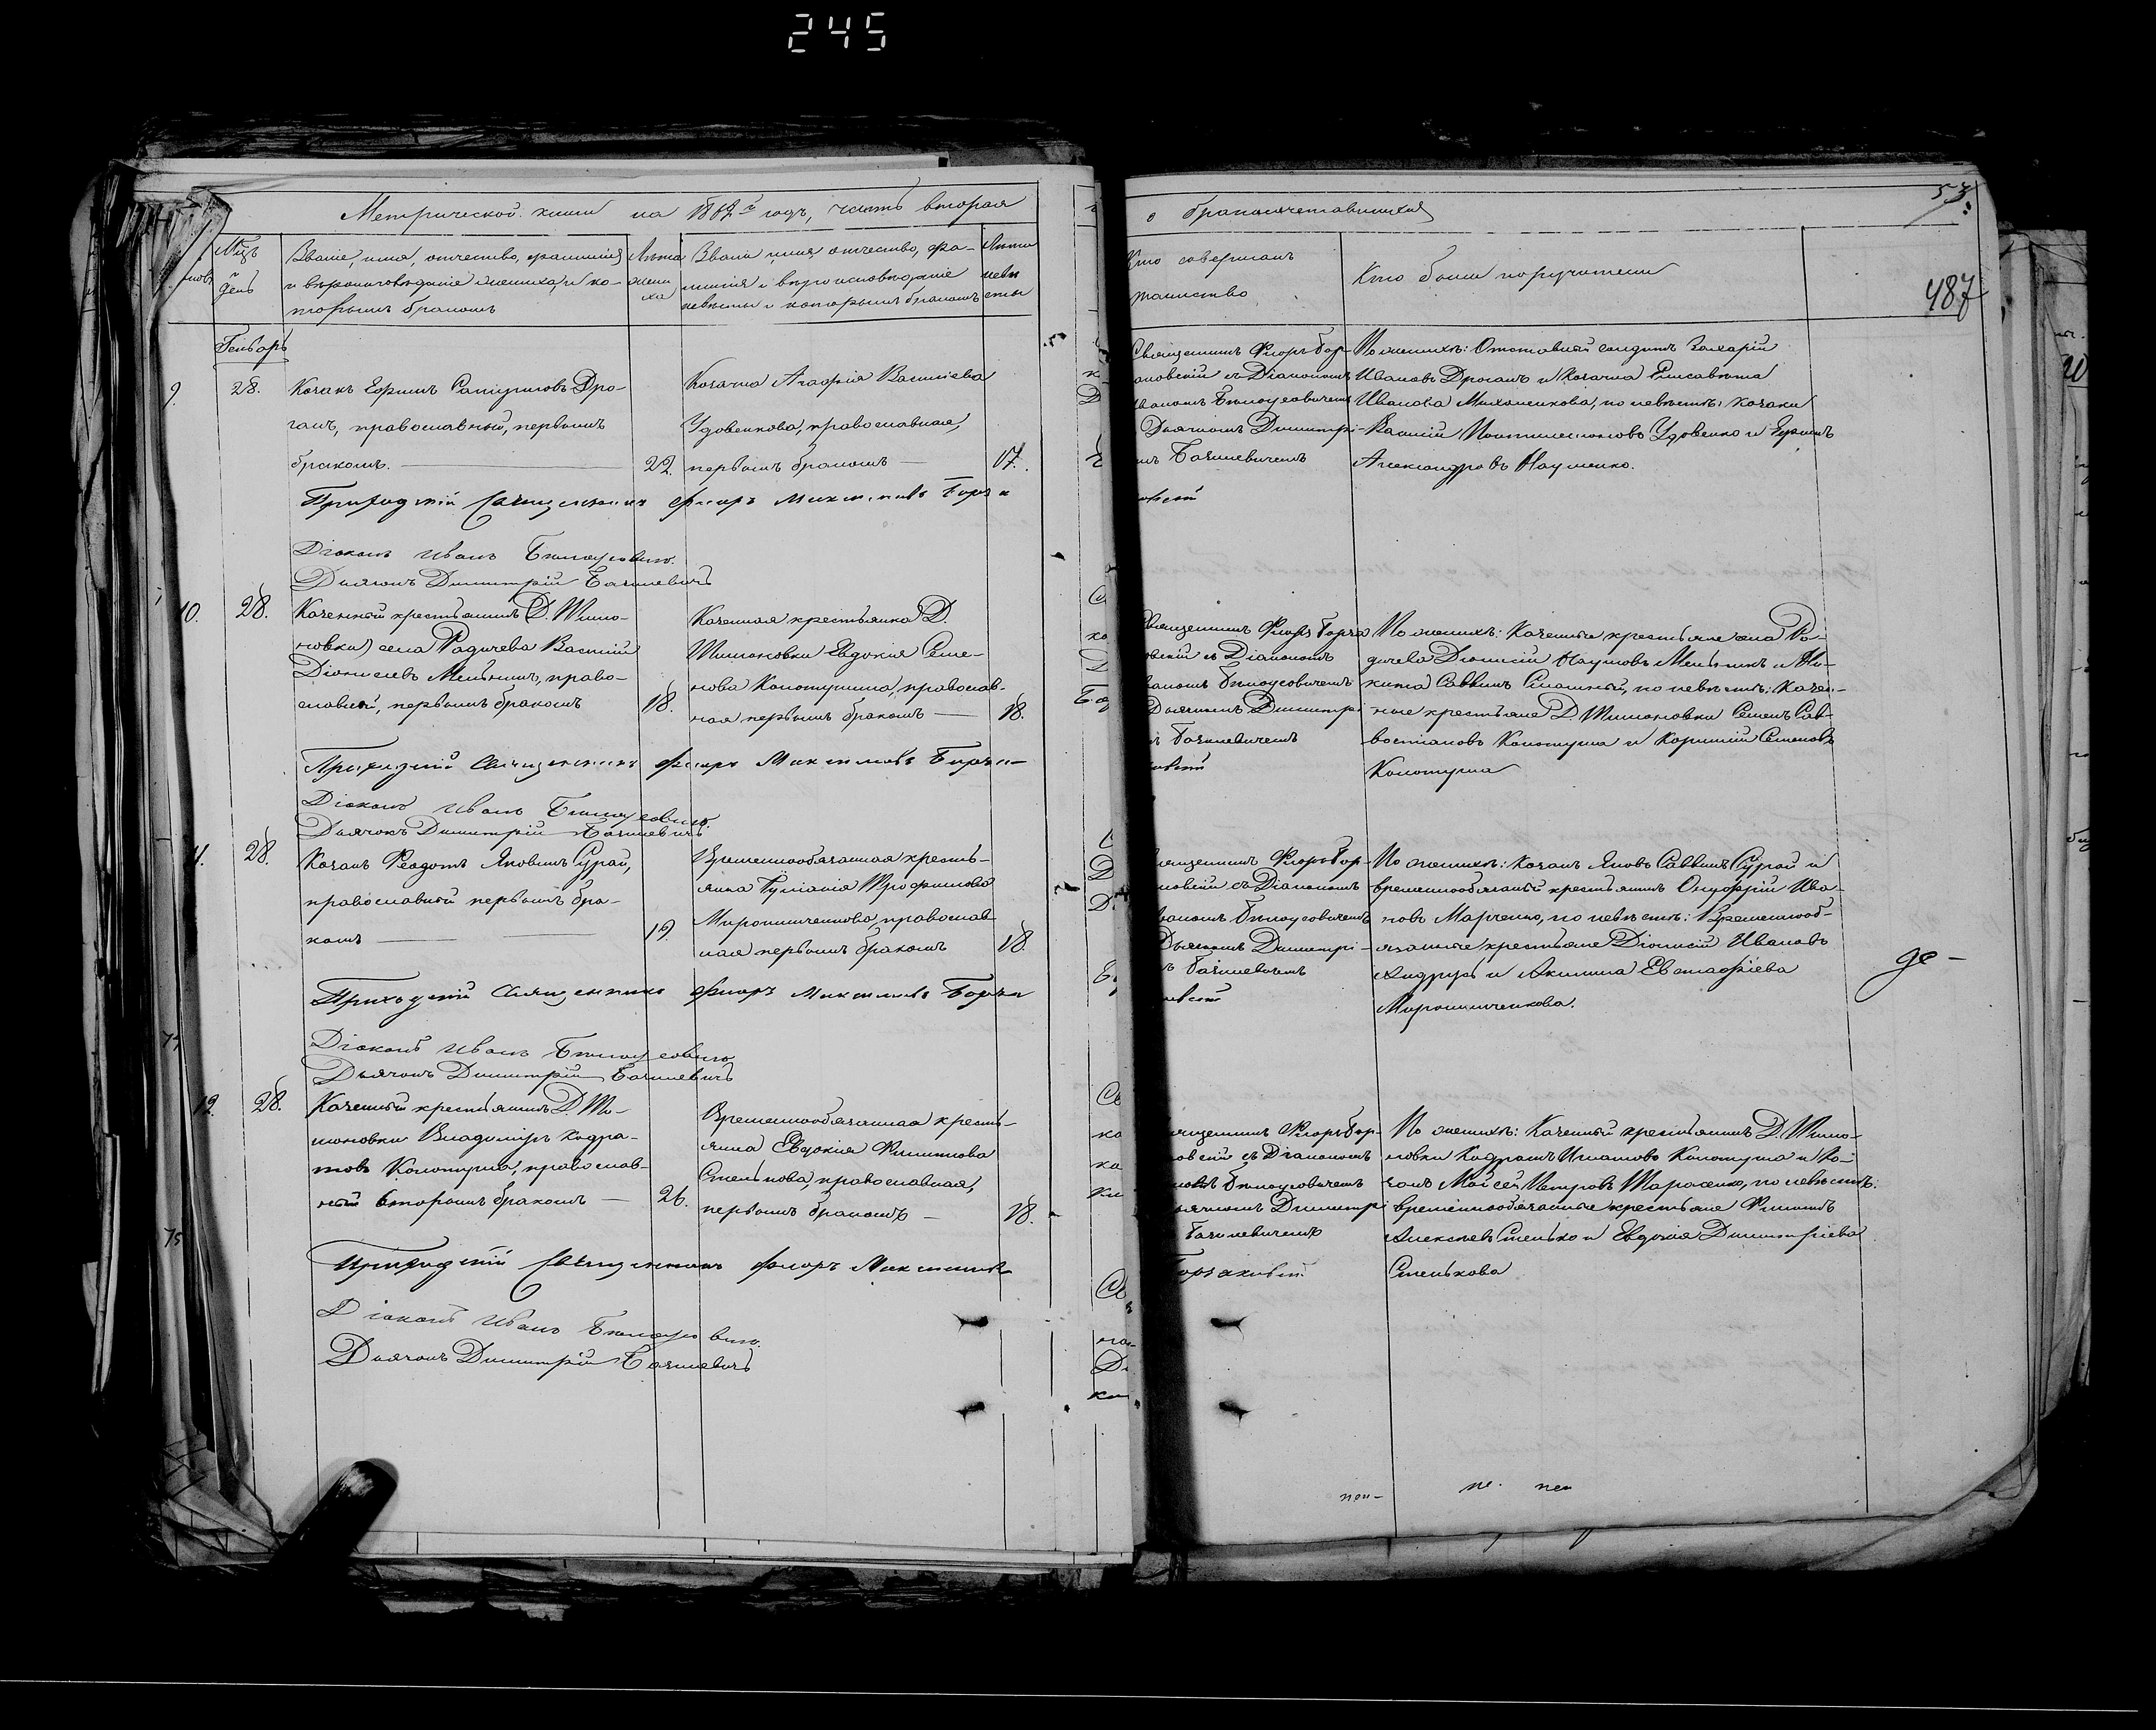 245
Метрической книги на 1862й годъ, часть вторая
о бракосочетавшихся
53
487
Мцъ
день
Званіе, имя, отчество, фамилія
и вѣроисповѣданіе жениха, и ко-
торымъ бракомъ
Лѣта
жени
ха
Званіе имя, отчество, фа-
милія и вѣроисповѣданіе
невѣсты и которымъ бракомъ
Лѣта
невѣ
сты
Кто совершалъ
таинство
Кто были поручители
Генварь
9.
28.
Козакъ Ефимъ
Дро-
ганъ, православный, первымъ
бракомъ.
22.
Козачка Агафія Василіева
Удовенкова, православная,
первымъ бракомъ
17.
Священникъ Флоръ Гор-
Діакономъ
Бѣлоусовичемъ
Дьячкомъ Димитрі-
По женихѣ: Отставный солдатъ Захарій
Ивановъ Дроганъ и Козачка Елисавета
Иванова Михаленкова, по невѣстѣ: козаки
Василій Удовенко и Ефимъ
Александровъ Науменко.
Приходскій Священникъ Флоръ
Діаконъ Иванъ Бѣлоусовичъ.
Дьячокъ Димитрій
10.
28.
Казенный крестьянинъ Д. Шимо-
новки села Радичева Василій
Діонисіевъ Мельникъ, право-
славный, первымъ бракомъ
18.
Казенная крестьянка Д.
Шимоновки Евдокія Семе-
нова Колотушина, православ-
ная первымъ бракомъ
18.
Священникъ Флоръ Горча
Діакономъ
Бѣлоусовичемъ
Дьячкомъ Димитрі
По женихѣ: Казенные крестьяне села Ра-
дичева Діонисій Наумовъ Мельникъ и Ни-
кита Саввинъ по невѣстѣ: Казен-
ные крестьяне Д. Шимоновки Семенъ Сав-
востіановъ Колотуша и Корнилій Семеновъ
Колотуша
Приходскій Священникъ Флоръ
Діаконъ Иванъ Бѣлоусовичъ.
Дьячокъ Димитрій
11.
28.
Козакъ Феодотъ Яковлевъ Сурай,
православный первымъ бра-
комъ
19.
Временнообязанная кресть-
янка Іуліанія Трофимова
Мирошниченкова, православ-
ная первымъ бракомъ
18.
Священникъ Флоръ Гор-
Діакономъ
Бѣлоусовичемъ
Дьячкомъ Димитрі-
По женихѣ: Козакъ Яковъ Саввинъ Сурай и
временнообязанный крестьянинъ Онуфрій Ива-
новъ Марченко, по невѣстѣ: Временнооб-
язанные крестьяне Діонисій Ивановъ
и Акилина Евстафіева
Мирошниченкова.
де-
Приходскій Священникъ Флоръ
Діаконъ Иванъ Бѣлоусовичъ
Дьячокъ Димитрій
12.
28.
Казенный крестьянинъ Д. Ши-
моновки Владиміръ Кодра-
товъ Колотуша, православ-
ный вторымъ бракомъ
26.
Временнообязанная кресть-
янка Евдокія Филиппова
Стенькова, православная,
первымъ бракомъ
18.
Священникъ Флоръ Гор-
Діакономъ
Бѣлоусовичемъ
Дьячкомъ Димитрі
По женихѣ: Казенный крестьянинъ Д. Шимо-
новки Кодратъ Игнатовъ Колотуша и Ко-
закъ Моисей Петровъ Тарасенко, по невѣстѣ:
временнообязанные крестьяне Филиппъ
Алексѣевъ Стенько и Евдокія Димитріева
Стенькова
Приходскій Священникъ Флоръ
Діаконъ Иванъ Бѣлоусовичъ.
Дьячокъ Димитрій